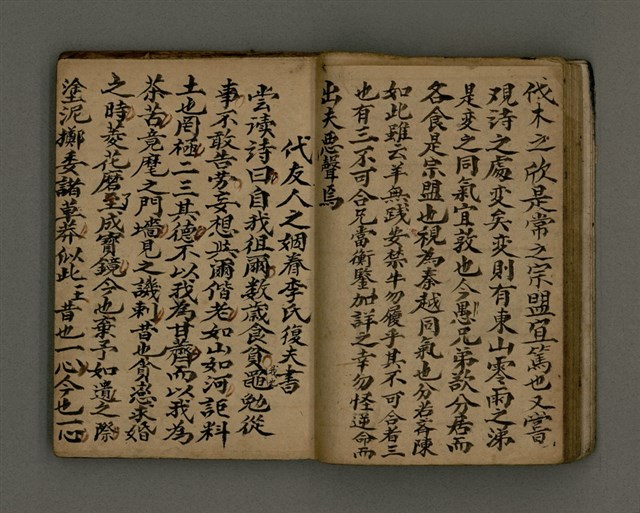 伐木之欣是常之宗盟宜篤也又嘗
观诗之處变矣变則有東山零雨之涕
是变之同氣宜敦也今愚兄弟欲分居而
各食是宗盟也視為秦越同氣也分若吝陳
如此雖云羊無践安禁牛勿履乎其不可合者三
也有三不可合兄當衡鑒加詳之幸勿怪逆命而
出夫惡聲焉
代友人之姻眷李氏復夫書
尝读诗曰自我徂爾数歲食貧黽勉從
事不敢告劳妄想與爾偕老如山如河詎料
土也罔極二三其德不以我為甘薺而以我為
荼苦竟麾之門墻見之譏刺昔也貪戀求婚
之時菱花磨了至成寶鏡今也棄予如遺之際
塗泥擲委諸草莽似此昔也一心今也一心